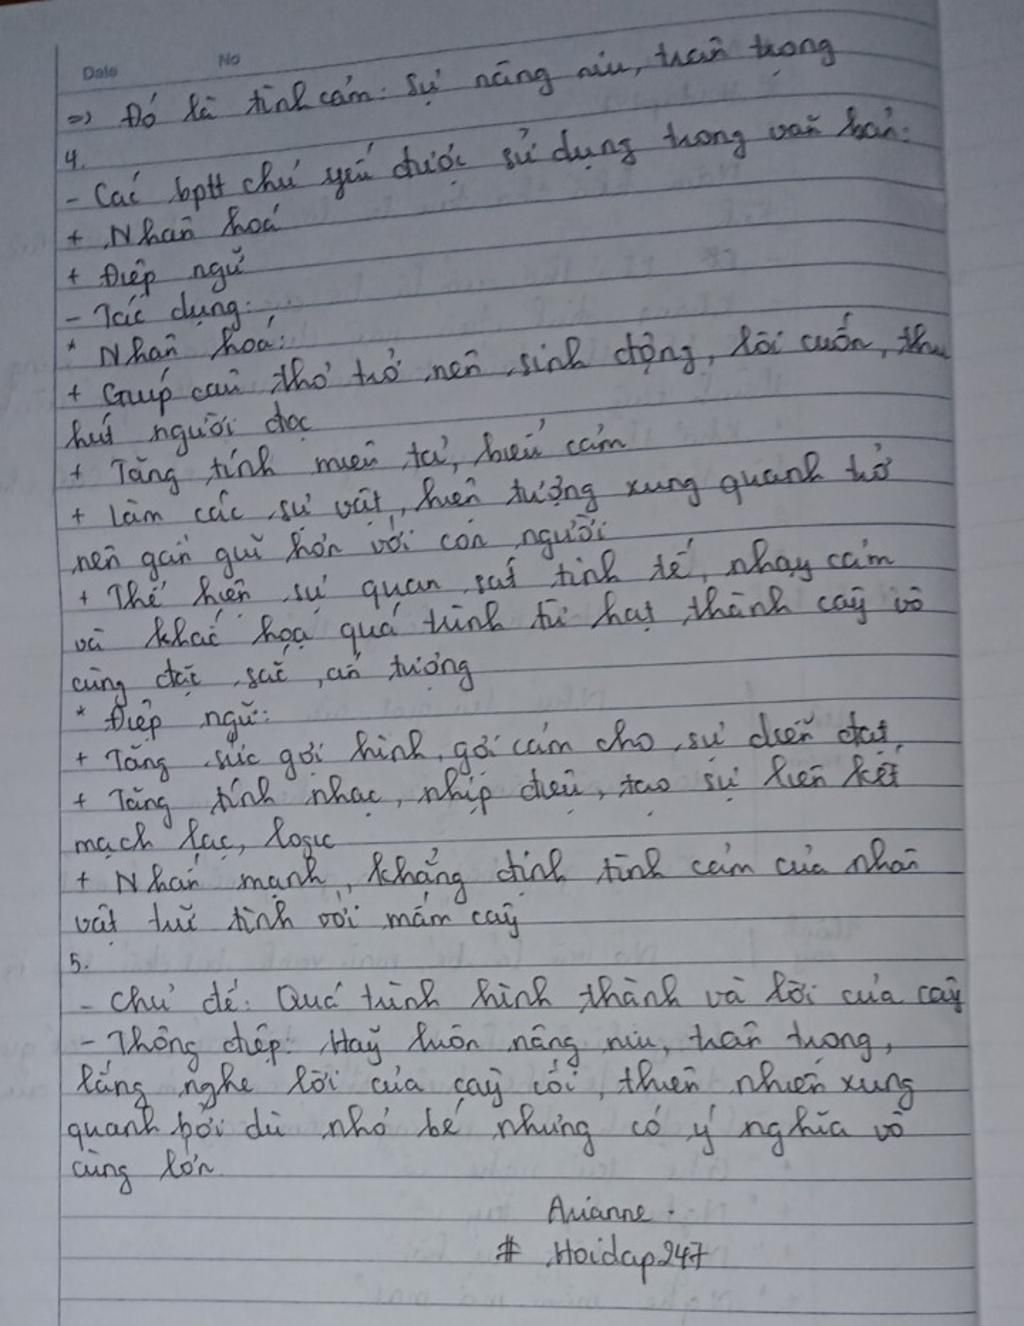 Date No
=> Đó là tình cảm: sự nâng niu, trân trọng
4.
- Các bptt chủ yếu được sử dụng trong văn bản:
+ Nhân hoá
+ Điệp ngữ
- Tác dụng:
* Nhân hoá:
+ Giúp câu thơ trở nên sinh động, lôi cuốn, thu
hút người đọc
+ Tăng tính miêu tả, biểu cảm
+ Làm các sự vật, hiện tượng xung quanh trở
nên gần gũi hơn với con người
+ Thể hiện sự quan sát tinh tế, nhạy cảm
và khắc hoạ quá trình từ hạt thành cây vô
cùng đặc sắc, ấn tượng
* Điệp ngữ:
+ Tăng sức gợi hình, gợi cảm cho sự diễn đạt
+ Tăng tính nhạc, nhịp điệu, tạo sự liên kết
mạch lạc, logic
+ Nhấn mạnh, khẳng định tình cảm của nhân
vật trữ tình với mầm cây
5.
- Chủ đề: Quá trình hình thành và lời của cây
- Thông điệp: Hãy luôn nâng niu, trân trọng,
lắng nghe lời của cây cối, thiên nhiên xung
quanh bởi dù nhỏ bé nhưng có ý nghĩa vô
cùng lớn.
Arianne.
# Hoidap247